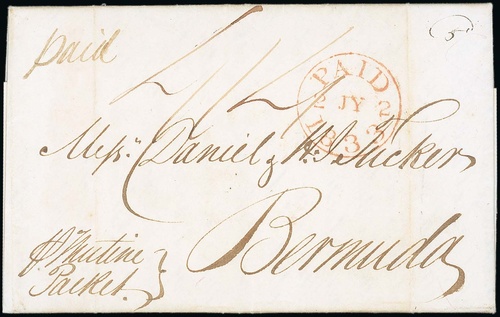 paid
5
4/4
PAID
2 JY 2
1833
Messrs. Daniel & H. J. Tucker
Bermuda
p. Mutine
Packet.